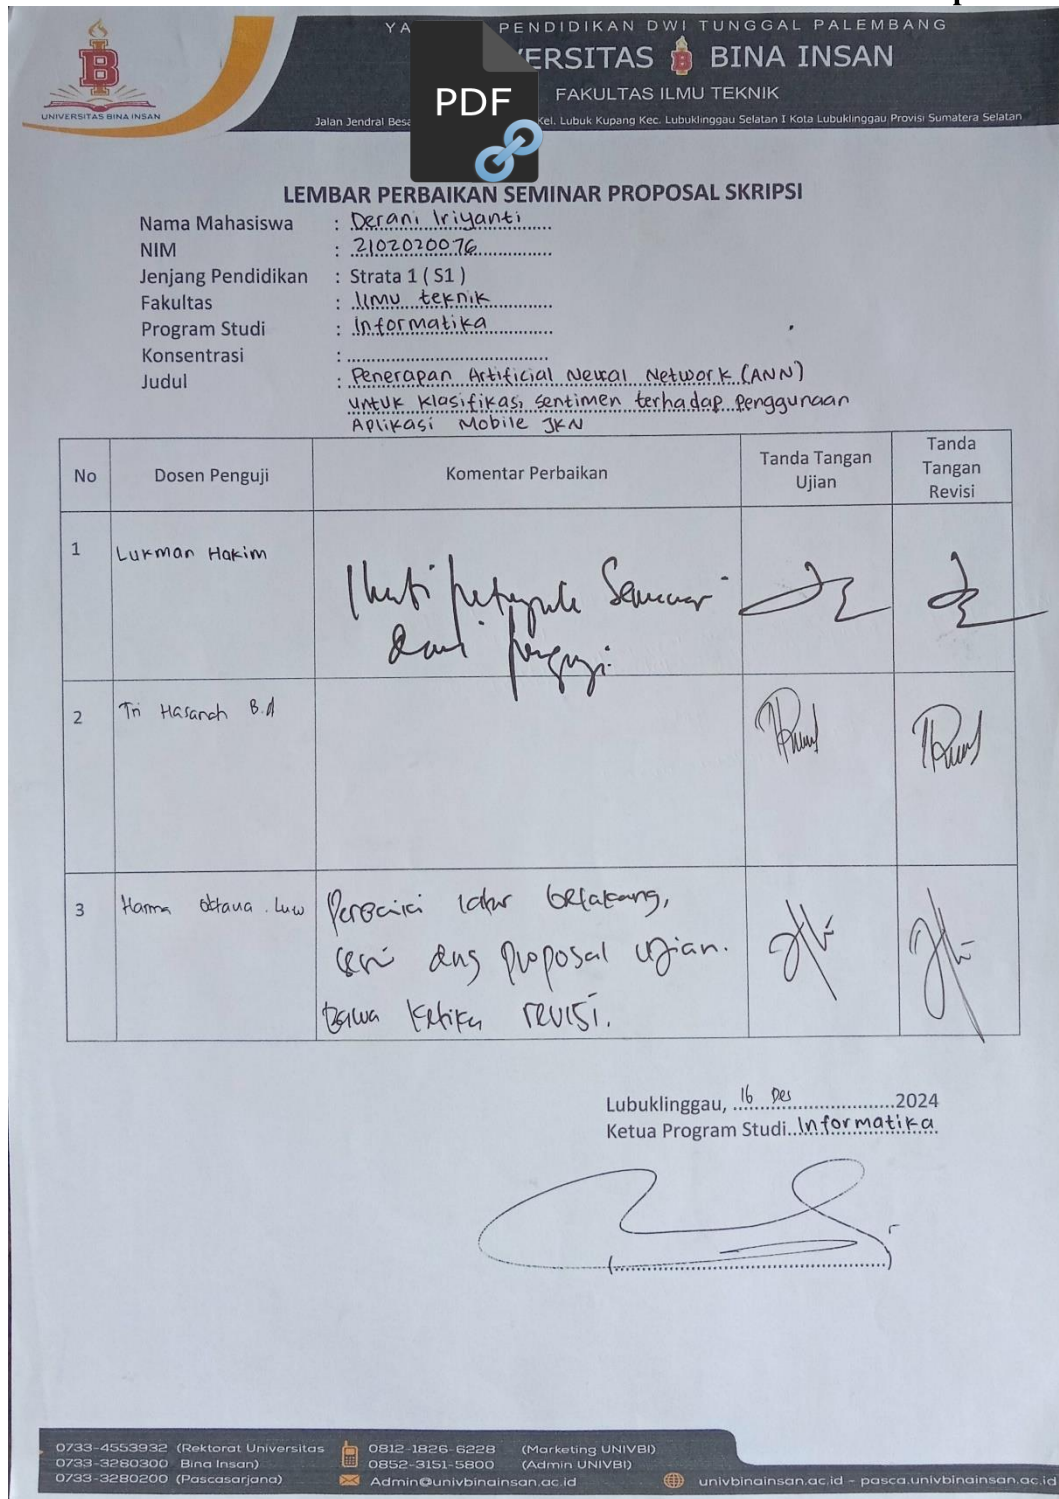 YA PENDIDIKAN DWI TUNGGAL PALEMBANG
ERSITAS BINA INSAN
FAKULTAS ILMU TEKNIK
UNIVERSITAS BINA INSAN
Jalan Jendral Besa Kel. Lubuk Kupang Kec. Lubuklinggau Selatan I Kota Lubuklinggau Provisi Sumatera Selatan
PDF
LEMBAR PERBAIKAN SEMINAR PROPOSAL SKRIPSI
Nama Mahasiswa : Derani Iriyanti
NIM : 2102020076
Jenjang Pendidikan : Strata 1 ( S1 )
Fakultas : Ilmu teknik
Program Studi : Informatika
Konsentrasi :
Judul : Penerapan Artificial Neural Network (ANN)
untuk klasifikasi sentimen terhadap penggunaan
Aplikasi Mobile JKN
No Dosen Penguji Komentar Perbaikan Tanda Tangan Ujian Tanda Tangan Revisi
1 Lukman Hakim
Seminar
dari penguji.
2 Tri Hasanah B.A
3 Harma Oktavia . Perbaiki latar belakang,
proposal ujian.
bawa ketika revisi.
Lubuklinggau, 16 Des 2024
Ketua Program Studi Informatika
0733-4553932 (Rektorat Universitas
0733-3280300 Bina Insan)
0733-3280200 (Pascasarjana)
0812-1826-6228 (Marketing UNIVBI)
0852-3151-5800 (Admin UNIVBI)
Admin@univbinainsan.ac.id
univbinainsan.ac.id - pasca.univbinainsan.ac.id